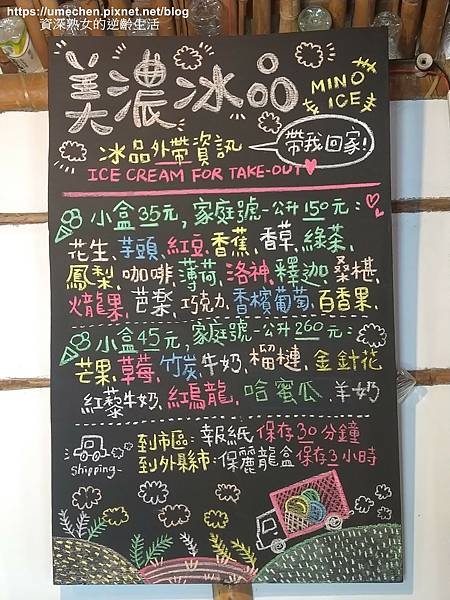 https://umechen.pixnet.net/blog
資深熟女的逆齡生活
美濃冰品
MINO ICE
冰品外帶資訊
帶我回家!
ICE CREAM FOR TAKE-OUT
小盒35元,家庭號一公升150元:
花生、芋頭、紅豆、香蕉、香草、綠茶、
鳳梨、咖啡、薄荷、洛神、釋迦、桑椹、
火龍果、芭樂、巧克力、香檳葡萄、百香果、
小盒45元,家庭號一公升260元:
芒果、草莓、竹炭牛奶、榴槤、金針花
紅藜牛奶、紅烏龍、哈蜜瓜、羊奶
到市區:報紙保存30分鐘
到外縣市:保麗龍盒保存3小時
Shipping~